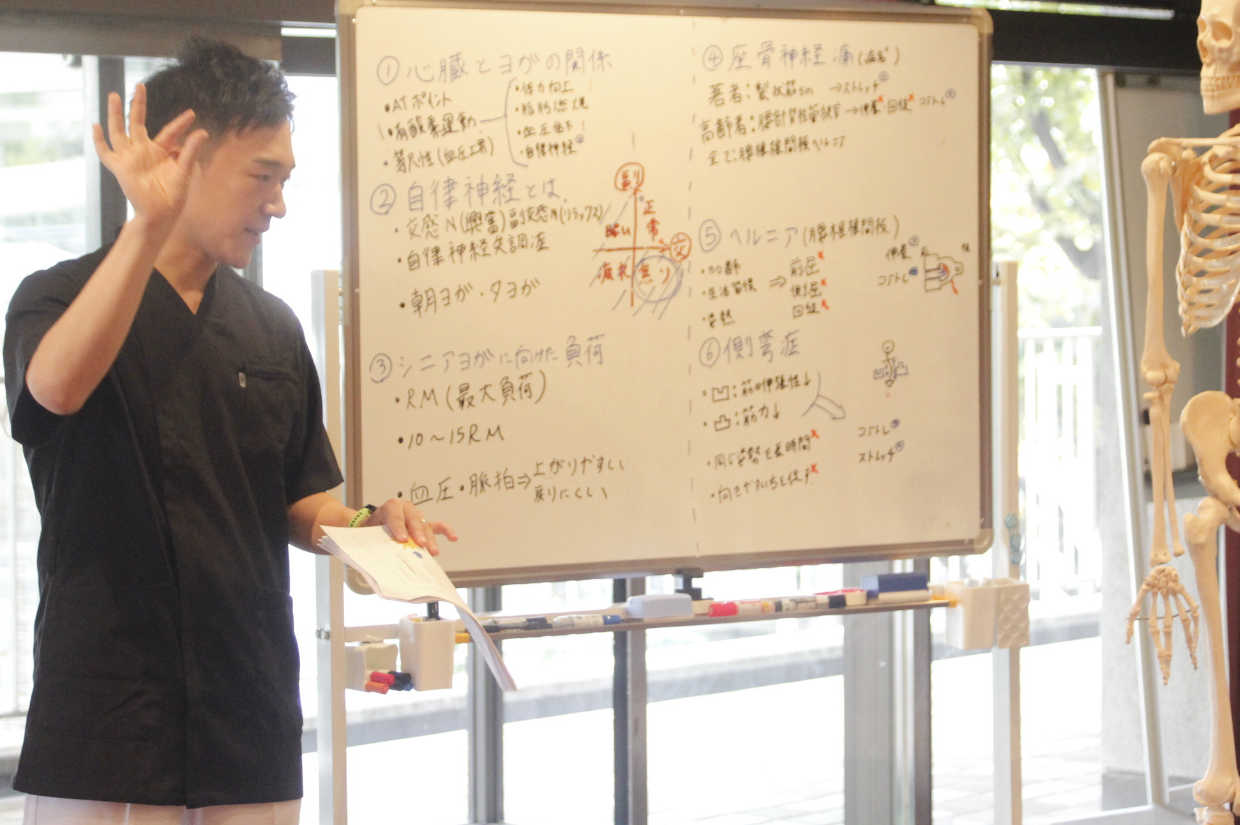 ① 心臓とヨガの関係
・ATポイント
・有酸素運動
・等尺性(血圧上昇)
・体力向上
・脂肪燃焼
・血圧低下
・自律神経
② 自律神経とは
・交感N(興奮)副交感N(リラックス)
・自律神経失調症
・朝ヨガ・夕ヨガ
副
正常
交
疲れ
焦り
③ シニアヨガに向けた負荷
・RM(最大負荷)
・10〜15RM
・血圧・脈拍⇒上がりやすい
戻りにくい
④ 座骨神経痛
→ストレッチ
高齢者:
コストレ
全て:腰椎椎間板ヘルニア
⑤ ヘルニア(腰椎椎間板)
・加齢
・生活習慣 ⇒
前屈
側屈
回旋
コストレ
⑥ 側弯症
・凹:筋の伸張性↓
・凸:筋力↓
・同じ姿勢を長時間
コストレ
ストレッチ